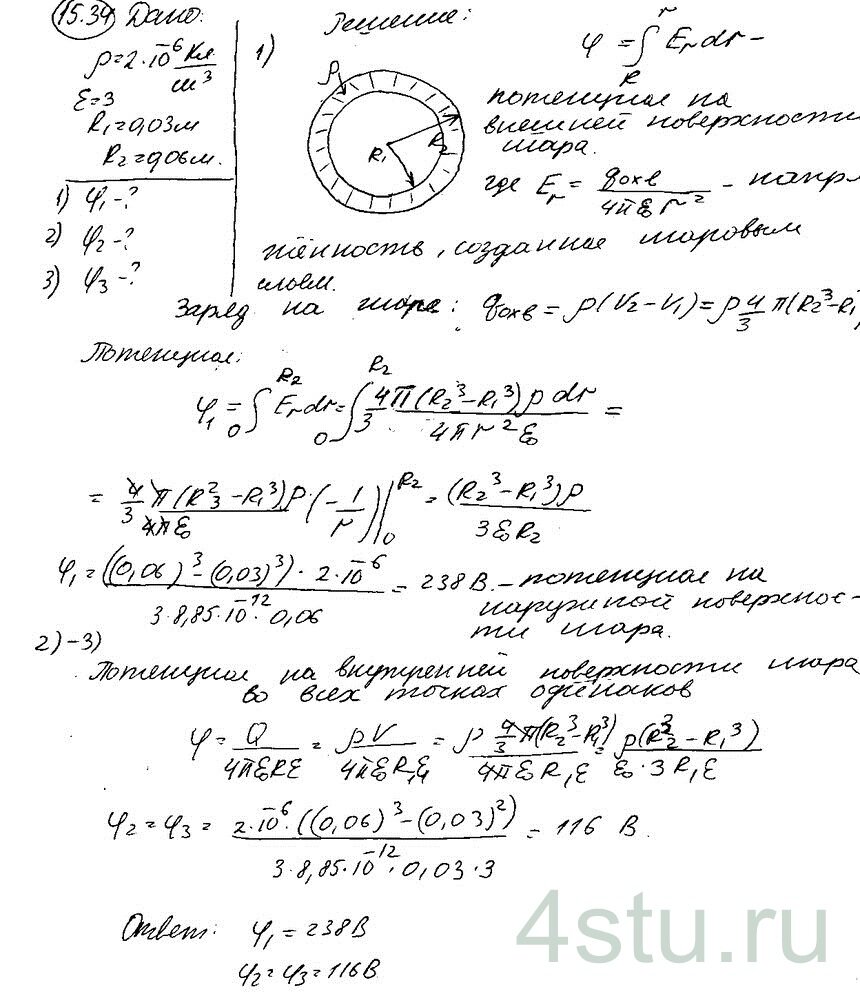 15.34 Дано:
ρ = 2·10⁻⁶ Кл/м³
ε = 3
R₁ = 0,03 м
R₂ = 0,06 м.
1) φ₁ - ?
2) φ₂ - ?
3) φ₃ - ?
Решение:
1)
ρ
R₁
R₂
φ = ∫_R^r E_r dr –
потенциал на
внешней поверхности
шара.
где E_r = q_охв / 4πε₀r² – напря
жённость, созданная шаровым
слоем.
Заряд на шаре: q_охв = ρ(V₂ – V₁) = ρ 4/3 π(R₂³ – R₁
Потенциал:
φ₁ = ∫_0^R₂ E_r dr = ∫_0^R₂ 4/3 π(R₂³ – R₁³) ρ dr / 4πr²ε₀ =
= 4/3 π(R₃² – R₁³)ρ / 4πε₀ · (– 1/r) |_0^R₂ = (R₂³ – R₁³)ρ / 3ε₀R₂
φ₁ = ((0,06)³ – (0,03)³)·2·10⁻⁶ / 3·8,85·10⁻¹²·0,06 = 238 В. – потенциал на
наружной поверхнос-
ти шара.
2)-3)
Потенциал на внутренней поверхности шара
во всех точках одинаков
φ = Q / 4πε₀Rε = ρV / 4πε₀R₁ε = ρ 4/3 π(R₂³ – R₁³) / 4πε₀R₁ε = ρ(R₂³ – R₁³) / ε₀·3R₁ε
φ₂ = φ₃ = 2·10⁻⁶·((0,06)³ – (0,03)²) / 3·8,85·10⁻¹²·0,03·3 = 116 В.
Ответ: φ₁ = 238 В
φ₂ = φ₃ = 116 В
4stu.ru